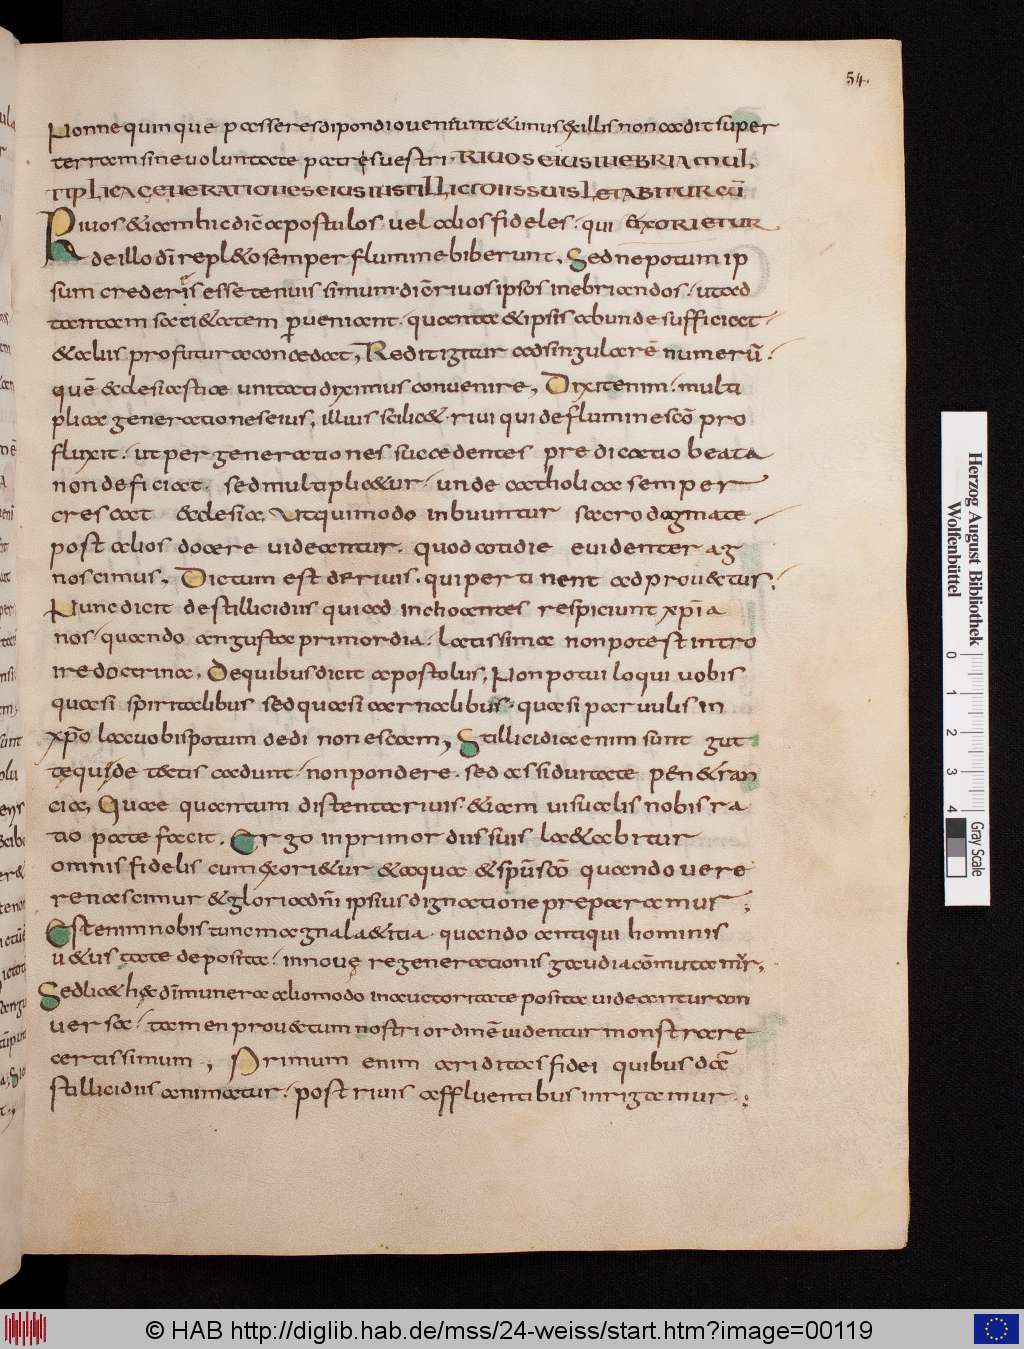 54.
Nonne quinque passeres dipondio veneunt & unus ex illis non cadit super
terram sine voluntate patris vestri. RIVOS EIUS INEBRIA MUL
TIPLICA GENERATIONES EIUS IN STILLICIDIIS SUIS LETABITUR CŪ
Rivos & iam hic dic̄ apostulos vel alios fideles. qui EXORIETUR
de illo dn̄i repl&o semper flumine biberunt, Sed ne potum ip
sum crederis esse tenuis simum. dic̄ rivos ipsos inebriandos. ut ad
tantam saci&atem perveniant. quanta & ipsis abunde sufficiat.
& alus profutura concedat, Redit igitur ad singularē numerū.
quē & clesiasticae unitati diximus convenire, Dixit enim. multi
plicae generationes eius, illius scilic& rivi qui de flumine scō pro
fluxit. ut per generationes succedentes predicatio beata
non deficiat. sed multiplic&ur. unde catholicae semper
crescat &clesiae, Utqui modo inbuuntur sacro dogmate.
post alios docere videantur. quod cotidie evidenter ag
noscimus, Dictum est de rivis. qui pertinent ad prov&tus.
Nunc dicit de stillicidiis qui ad inchoantes respiciunt xp̄ia
nos. quando angusta primordia. laetissimae non potest intro
ire doctrinae, De quibus dicit apostolus, Non potui loqui vobis
quasi spiritalibus sed quasi carnalibus. quasi parvulis in
xp̄o lac vobis potum dedi non escam, Stillicidia enim sunt gut
tę quide tectis cadunt. non pondere. sed assiduitate pen&ran
cia, Quae quantum distent a rivis. &iam visualis nobis ra
tio pate facit, Ergo in primordiis suis la&abitur
omnis fidelis cum exori&ur & aqua & sp̄u scō quando vere
renascimur & gloria dn̄i ipsius dignatione preparamur;
Est enim nobis tunc magna la&itia. quando antiqui hominis
v&ustate deposita. in nove regenerationis gaudia cōmutamur;
Sed lic& hęc dn̄i munera alio modo in auctoritate posita videantur con
versa. tamen prov&tum nostri ordinē videntur monstrare
certissimum; Primum enim ariditas fidei quibusdā
stillicidiis animatur. post rivis affluentibus inrigamur.
Herzog August Bibliothek
Wolfenbüttel
0 1 2 3 4
Gray Scale
© HAB http://diglib.hab.de/mss/24-weiss/start.htm?image=00119